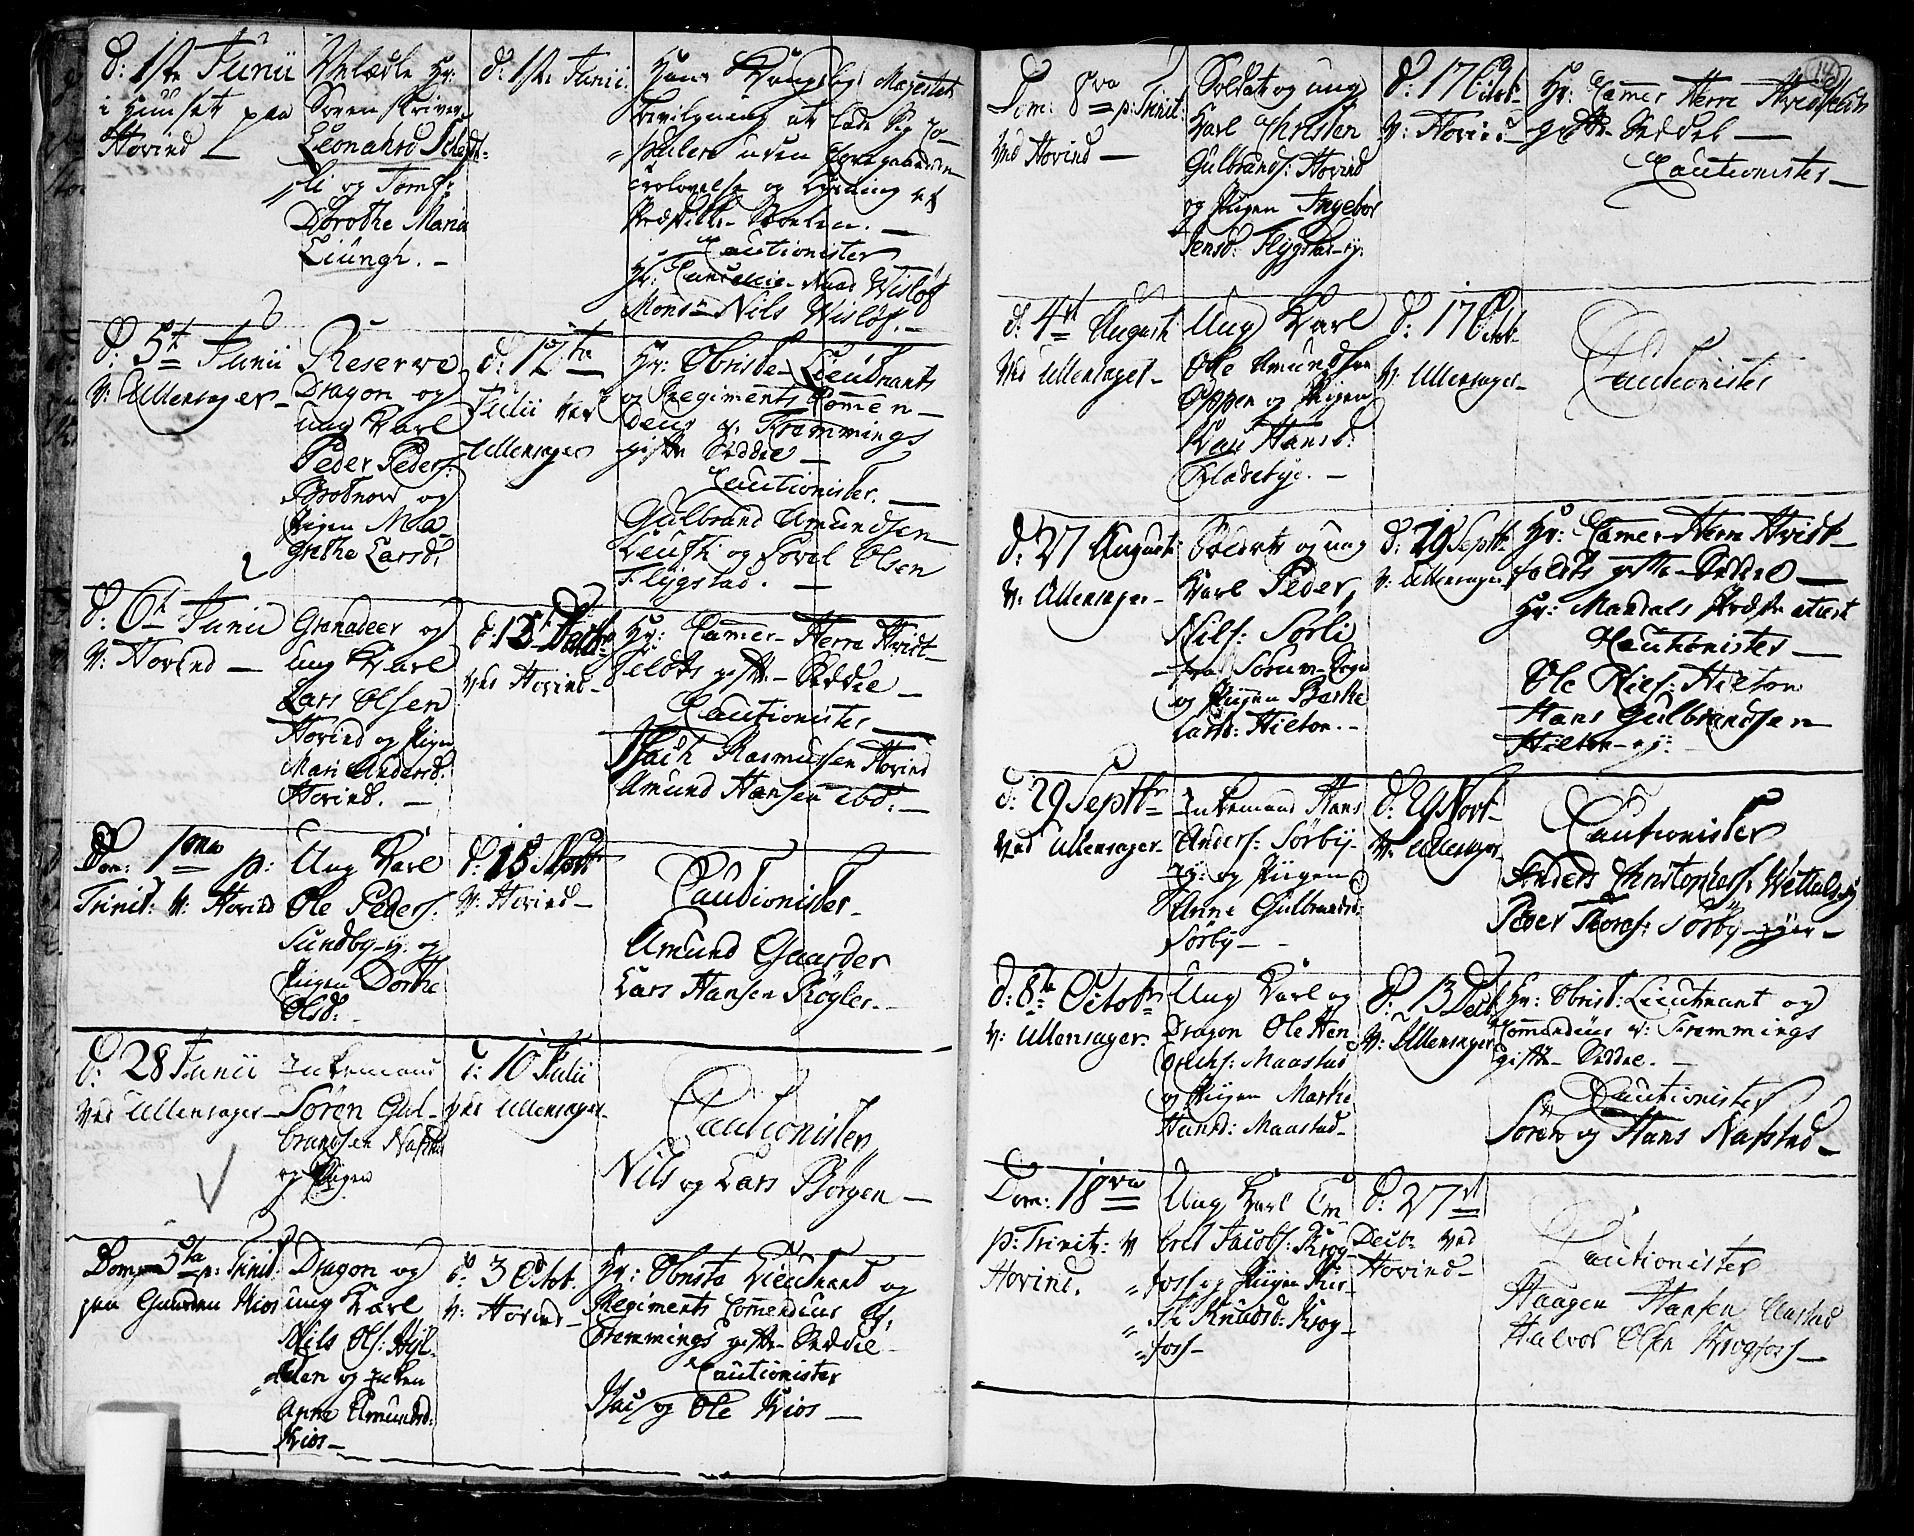 d: 1ste Junii
i Huuset paa
Hovind
Velædle Hr:
Soren skriver
Leonahrd
og Jomf:
Dorothe Maria
Liungh. -
d: 1ste Junii.
Hans Kongelig Majestets
Bevilgning at lade Sig Co-
pulere uden foregaaende
Trolovelse og Lysning af
Prædike Stoelen. -
Cautionister
Hr: Cancellie-Raad Wisløf
Monsr Nils Wisløf. -
d: 5te Junii
V: Ullensager -
Reserve
Dragon og
ung Karl
Peder Peders:
og
Pigen Ma-
grethe Larsd:
d: 12te
Julii ved
Ullensager
Hr: Obriste-Lieutnants
og Regiments Commen-
deur v: Fremmings
gifte Seddel -
Cautionister. -
Gulbrand Amundsen
og Povel Olsen
Flygstad. -
d: 6te Junii
V: Hovind -
Granadeer og
ung Karl
Lars Olsen
Hovind og Pigen
Mari Andersd:
Hovind. -
ved Hovind -
Hr: Camer-Herre Hvidt-
feldts gifte-Seddel -
Cautionister -
Isach Rasmussen Hovind
Amund Hansen ibd: -
Dom: 1ma p:
Trinit: V: Hovind
Ung Karl
Ole Peders:
Sundby-ej: og
Pigen Dorthe
Olsd: -
V: Hovind -
Cautionister -
Amund Gaarder
Lars Hansen Rögler -
d: 28 Junii
ved Ullensager -
Enkemand
Sören Gul-
brandsen Nafstad
og Pigen
d: 10 Julii
ved Ullensager -
Cautionister
Nils og Lars Börgen -
Dom: 5ta p: Trinit:
paa Gaarden Kios
Dragon og
ung Karl
Nils Ols:
og Enken
Anne Amundsd:
Kios -
d: 3 Octob.
V: Hovind -
Hr: Obriste Lieutnant og
Regiments Commendeur v:
Fremmings gifte-Seddel -
Cautionister
og Ole Kios -
Dom: 8va p: Trinit:
ved Hovind -
Soldat og ung
Karl Christen
Gulbrands: Hovind
og Pigen Ingebor
Jensd: Flygstad-ej:
d: 17 Octob-
V: Hovind -
Hr: Camer Herre Hvidtfeldts
gifte-Seddel -
Cautionister -
d: 4de Augusti
ved Ullensager -
Ung Karl
Ole Amundsen
Oppen og Pigen
Kari Hansd:
Kladebye. -
d: 17 Octob-
V: Ullensager -
Cautionister
d: 27 Augusti
V: Ullensager -
Soldat og ung
Karl Peder
Nils: Sorli
fra Sorum-Sogn
og Pigen Berthe
Larsd: Hilton. -
d: 29 Septbr
V: Ullensager
Hr: Camer-Herre Hvidt-
feldts gifte-Seddel -
Hr: Mandals Præste attest
Cautionister -
Ole Niels: Hilton
Hans Gulbrandsen
Hilton-ej:
d: 29 Septbr
ved Ullensager -
Enkemand Hans
Anders: Sörby-
ej: og Pigen
Anne Gulbrandsd:
Sörby -
d: 29 Novb-
V: Ullensager -
Cautionister
Anders Christophers:
Peder Thores: Sörby-ejer -
d: 8de Octobr
V: Ullensager -
Ung Karl og
Dragon Ole Hen
richs: Maastad
og Pigen Marthe
Hansd: Maastad -
d: 13 Decb
V: Ullensager
Hr: Obrist: Lieutnant og
Commendeur v: Fremmings
gifte-Seddel. -
Cautionister
Sören og Hans Nafstad -
Dom: 18va
p: Trinit: V
Hovind.
Ung Karl Em
bret Jacobs: Krog-
fos og Pigen Kir-
sti Knudsd: Krog-
fos -
d: 27de
Decbr ved
Hovind -
Cautionister
Haagen Hansen Aastad
Halvor Olsen Krogfoss -